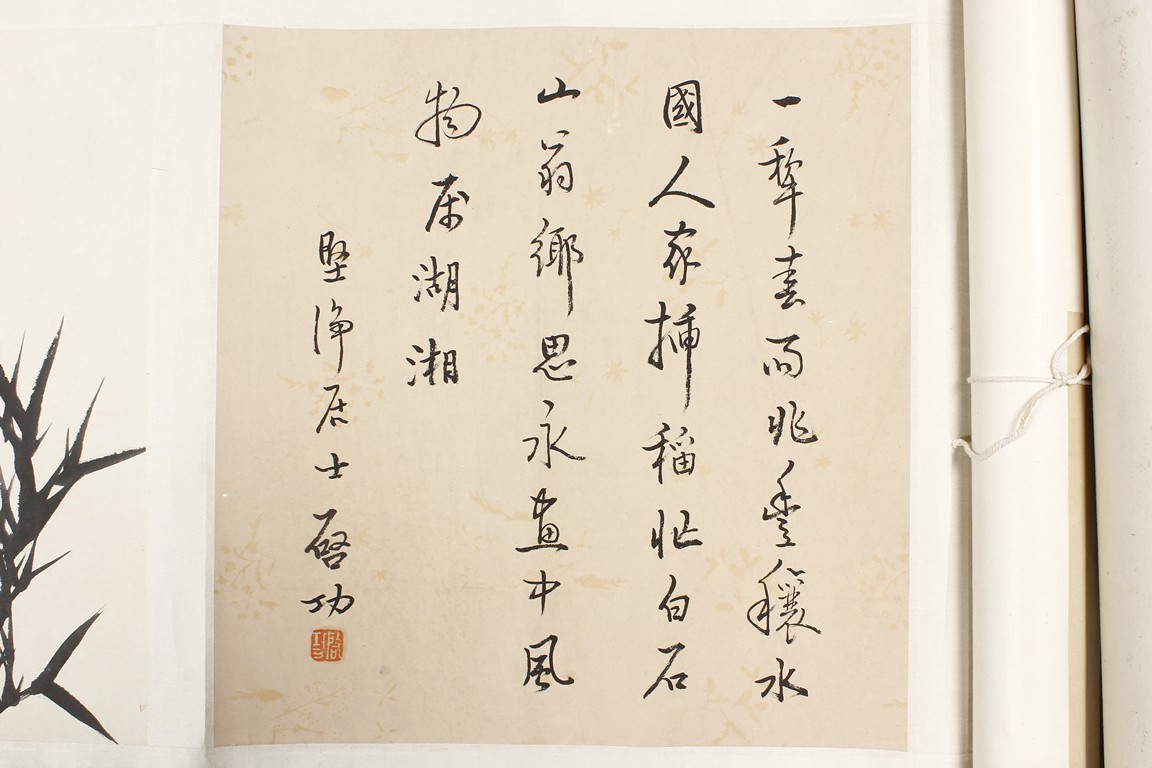 一犂春雨兆豐穰水
國人家插稻忙白石
山翁鄉思永畫中風
物屬湖湘
堅淨居士啓功
啓功